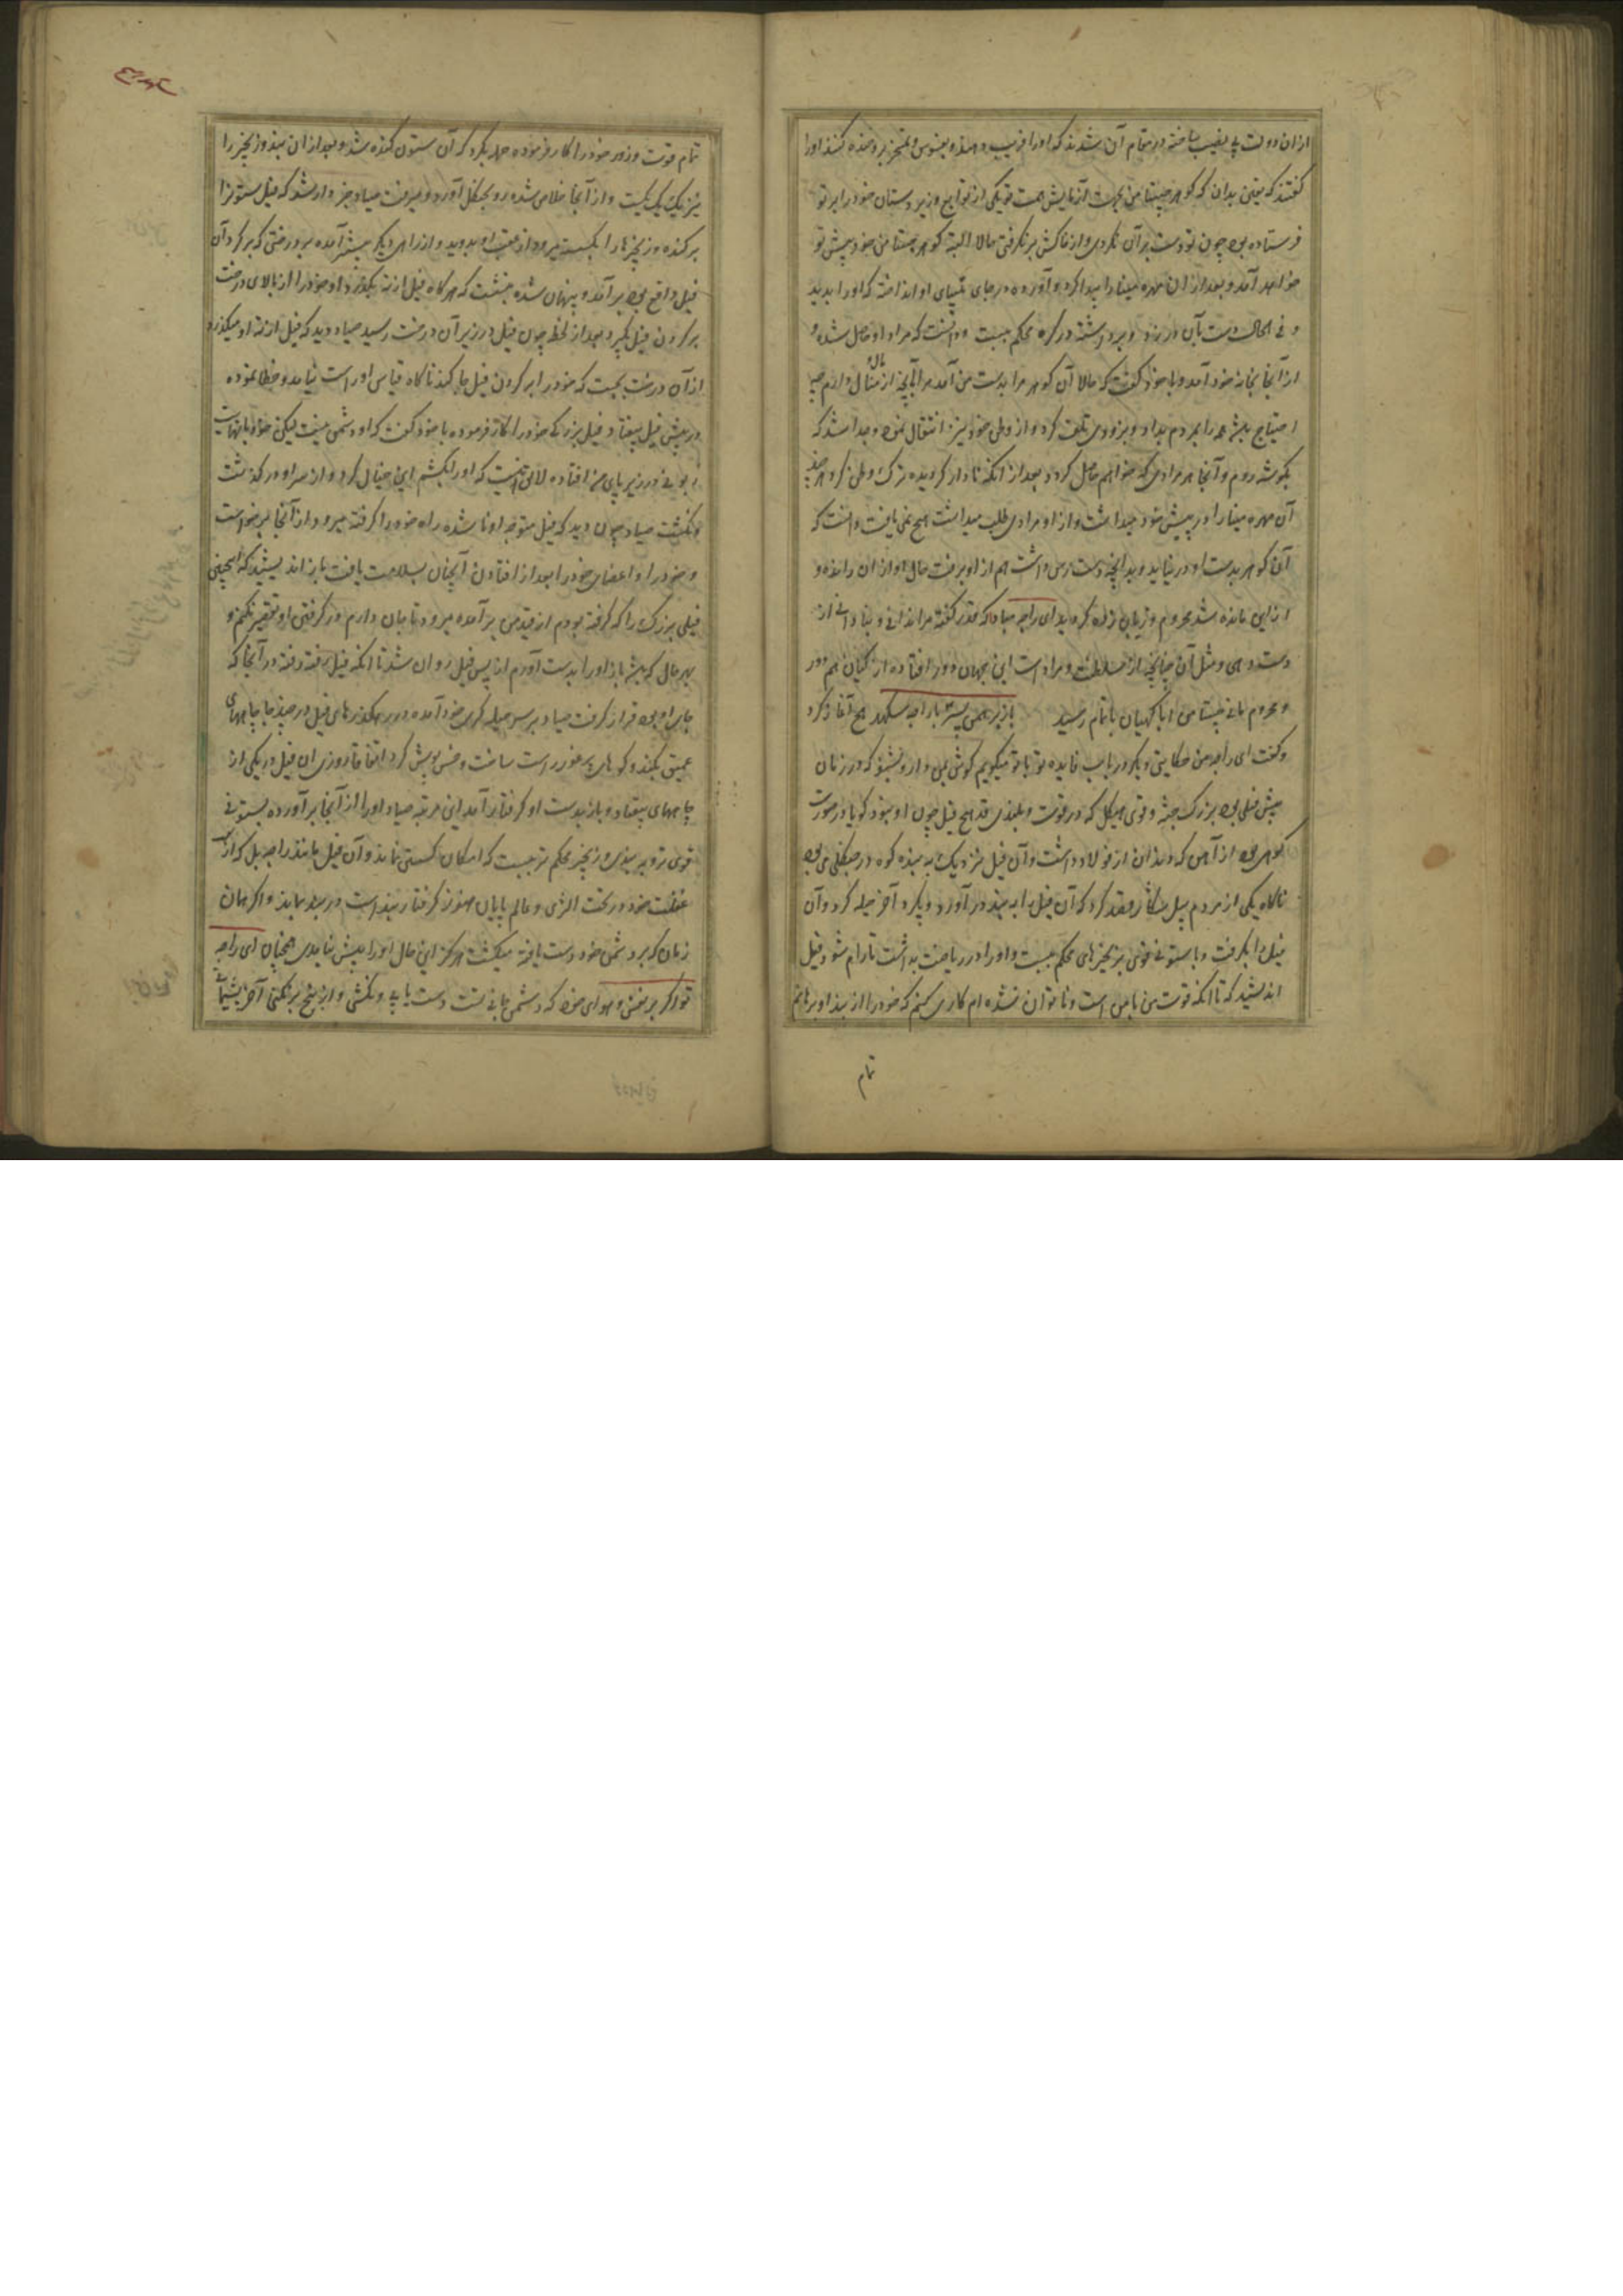 ازان دولت بی نصیب ساخته در مقام آن شدند که او را فریب دهند و بفسوس و تمسخر برو خنده کنند او را
گفتند که یقین بدان که گوهر چنتامن بجهت آزمایش همت تو یکی از توابع و زیردستان خود را بر تو
فرستاده بود چون تو دست بر آن نکردی و از خاکش بر نگرفتی حالا البته گوهر چنتامن خود پیش تو
خواهد آمد و بعد از ان مهره مینا را پیدا کرده و آورده در جای او انداخته که او را بدید
و فی الحال دست بآن در زد و برداشته در گره محکم ببست و دانست که مراد او حاصل شده و
از آنجا بخانه خود آمد و با خود گفت که حالا آن گوهر مرا بدست من آمد مرا بآنچه از مال و منال دارم چه
احتیاج بیشتر همه را بمردم بداد و بزودی تلف کرد و از وطن خود نیز انتقال نموده جدا شد که
بگوشه روم و آنجا هر مرادی که خواهم حاصل گردد بعد از آنکه نادار گردیده ترک وطن کرد هر چند
آن مهره مینا را در پیش خود میداشت و از او مرادی طلب میداشت هیچ نمی یافت دانست که
آن گوهر بدست او در نیاید و بدانچه دست رس داشت هم از او برفت حال او از ان رانده و
ازین مانده شد محروم و زیان زده گردید ای راجه مباد که قدر گفته مرا ندانی و بنادانی از
دست دهی و مثل آن چنانچه از سلطنت و مراد است این جهان دور افتاده از گیان هم دور
و محروم مانی چنتامن اپاکهیان باتمام رسید باز برهمن پسر با راجه سکهدهج آغاز کرد
و گفت ای راجه من حکایتی دیگر در باب فایده تو با تو میگویم گوش بمن دار و بشنو که در زمان
پیش فیلی بود بزرگ جثه و قوی هیکل که در قوت و بلندی قد هیچ فیل چون او نبود گویا در صورت
کوهی بود از آهن که دندان از فولاد داشت و آن فیل نزدیک به بنده کوه در جنگلی می بود
ناگاه یکی از مردم فیل شکار قصد کرد که آن فیل را به بند در آورد و بگیرد آخر حیله کرد و آن
فیل را بگرفت و با ستونی قوی بزنجیرهای محکم ببست و او را در ریاضت بداشت تا رام شود فیل
اندیشید که تا آنکه قوت من با من است و ناتوان نشده ام کاری کنم که خود را از بند او برهانم
تمام
تمام قوت و زور خود را کار فرموده جهد بکرد که آن ستون کنده شد و بعد از ان بند و زنجیر را
نیز یک یک بگسست و از آنجا خلاص شده رو بجنگل آورد و میرفت صیاد خبردار شد که فیل ستون را
برکنده و زنجیرها را بگسسته میرود از عقب او بدوید و از راهی دیگر پیشتر آمده بر درختی که بر گرد آن
فیل واقع بود بر آمد و پنهان شده بنشست که هرگاه فیل از ته بگذرد او خود را از بالای درخت
بر گردن فیل بگیرد بعد از لحظه چون فیل در زیر آن درخت رسید صیاد دید که فیل از ته او میگذرد
از آن درخت بجست که خود را بر گردن فیل جا کند ناگاه قیاس او راست نیامد و خطا نموده
در پیش فیل بیفتاد فیل بزرگی خود را کار فرموده با خود گفت که او دشمن منست لیکن حالا
زبونی در زیر پای من افتاده لایق نیست که او را بکشم این خیال کرد و از سر او در گذشت
و نکشت صیاد چون دید که فیل متوجه او نا شده راه خود را گرفته میرود از آنجا برخاست
و خود را و اعضای خود را بعد از افتادن آنچنان بسلامت یافت باز اندیشید که اینچنین
فیلی بزرگ را که گرفته بودم از قید من بر آمده میرود تا جان دارم در گرفتن او تقصیر نکنم و
بهر حال که باشد باز او را بدست آورم از پس فیل روان شد تا آنکه فیل رفته رفته در آنجا که
جای او بود قرار گرفت صیاد بر سر حیله گری خود آمده در رهگذرهای فیل در چند جا چاههای
عمیق بکند و گوهای پر خطر راست ساخت و خس پوش کرد اتفاقا روزی آن فیل در یکی از
چاههای بیفتاد و باز بدست او گرفتار آمد این مرتبه صیاد او را از آنجا بر آورده بستونی
قوی تر و به بند و زنجیر محکم تر ببست که امکان گسستن نماند و آن فیل مانند راجه بل که از
غفلت خود در تحت الثری و عالم پایان هنوز گرفتار بند است در بند بماند و اگر همان
زمان که بر دشمن خود دست یافته میکشت هرگز این حال او را پیش نیامدی همچنان ای راجه
تو اگر بر نفس و هوای خود که دشمن جانی تست دست یابی و نکشی و از بیخ بر نکنی آخر پشیمانی